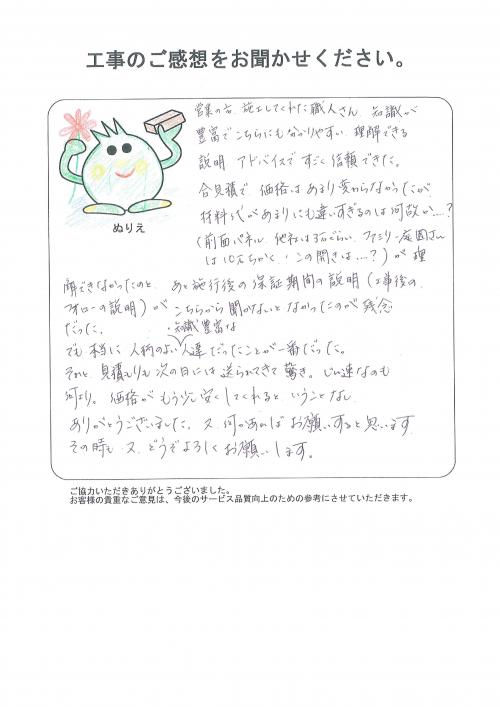 工事のご感想をお聞かせください。
営業の方、施工してくれた職人さん、知識が
豊富でこちらにもわかりやすい、理解できる
説明、アドバイスですごく信頼できた。
合見積で価格はあまり変わらなかったが、
材料代があまりにも違いすぎるのは何故か…?
(前面パネル、他社は3万ぐらい、ファミリー庭園さん
は10万ちかく、この開きは…?)が理
ぬりえ
解できなかったのと、あと施行後の保証期間の説明(工事後の
フォローの説明)がこちらから聞かないとなかったのが残念
だった。
・知識豊富な
でも本当に人柄のよい人達だったことが一番だった。
それと見積もりも次の日には送られてきて驚き。迅速なのも
何より。価格がもう少し安くしてくれるということなし
ありがとうございました。又、何かあればお願いすると思います
その時も又、どうぞよろしくお願いします。
ご協力いただきありがとうございました。
お客様の貴重なご意見は、今後のサービス品質向上のための参考にさせていただきます。